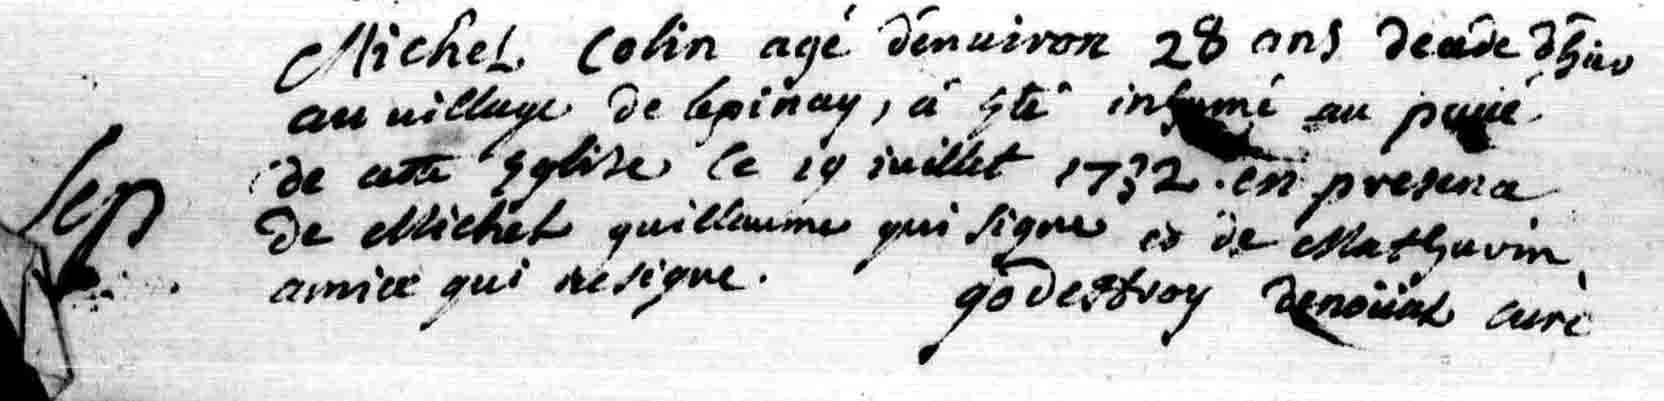 Michel Colin agé d'environ 28 ans decedé d'hier
au village de lepinay, a èté inhumé au pavé
de cette Eglise le 19 juillet 1732. en presence
Sep
de Michel guillaume qui signe et de Mathurin
amice qui ne signe.
godeffroy denoüal curé